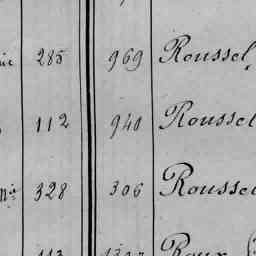 285 969 Roussel,
112 940 Roussel
328 306 Rousse
Roux